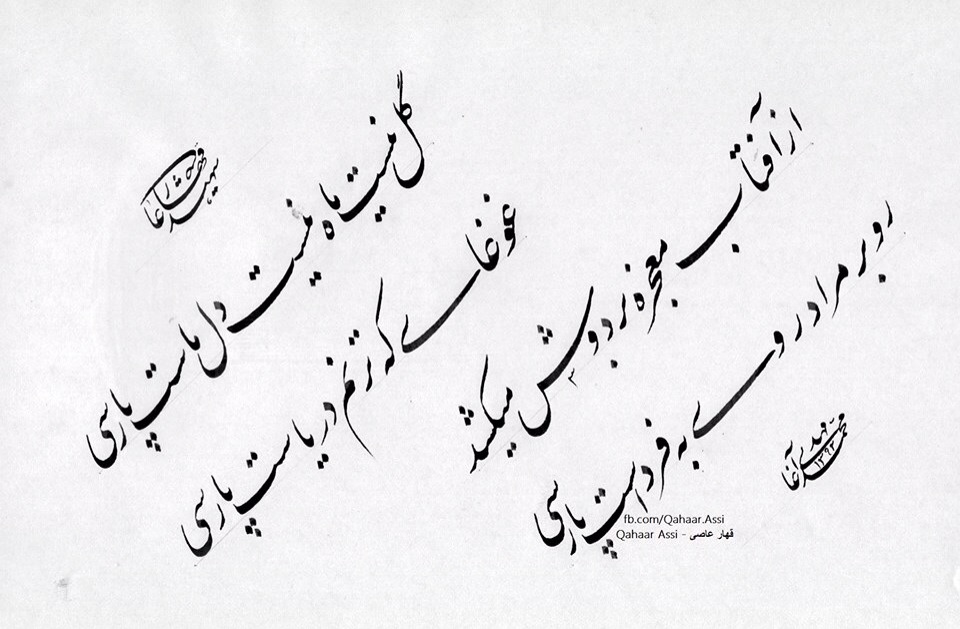 گل نیست ماه نیست دل ماست پارسی
غوغای که ترنم دریاست پارسی
از آفتاب معجزه بر دوش میکشد
رو بر مراد روی به فرداست پارسی
محمد مهدی آقا
۱۳۹۲
fb.com/Qahaar.Assi
Qahaar Assi - قهار عاصی